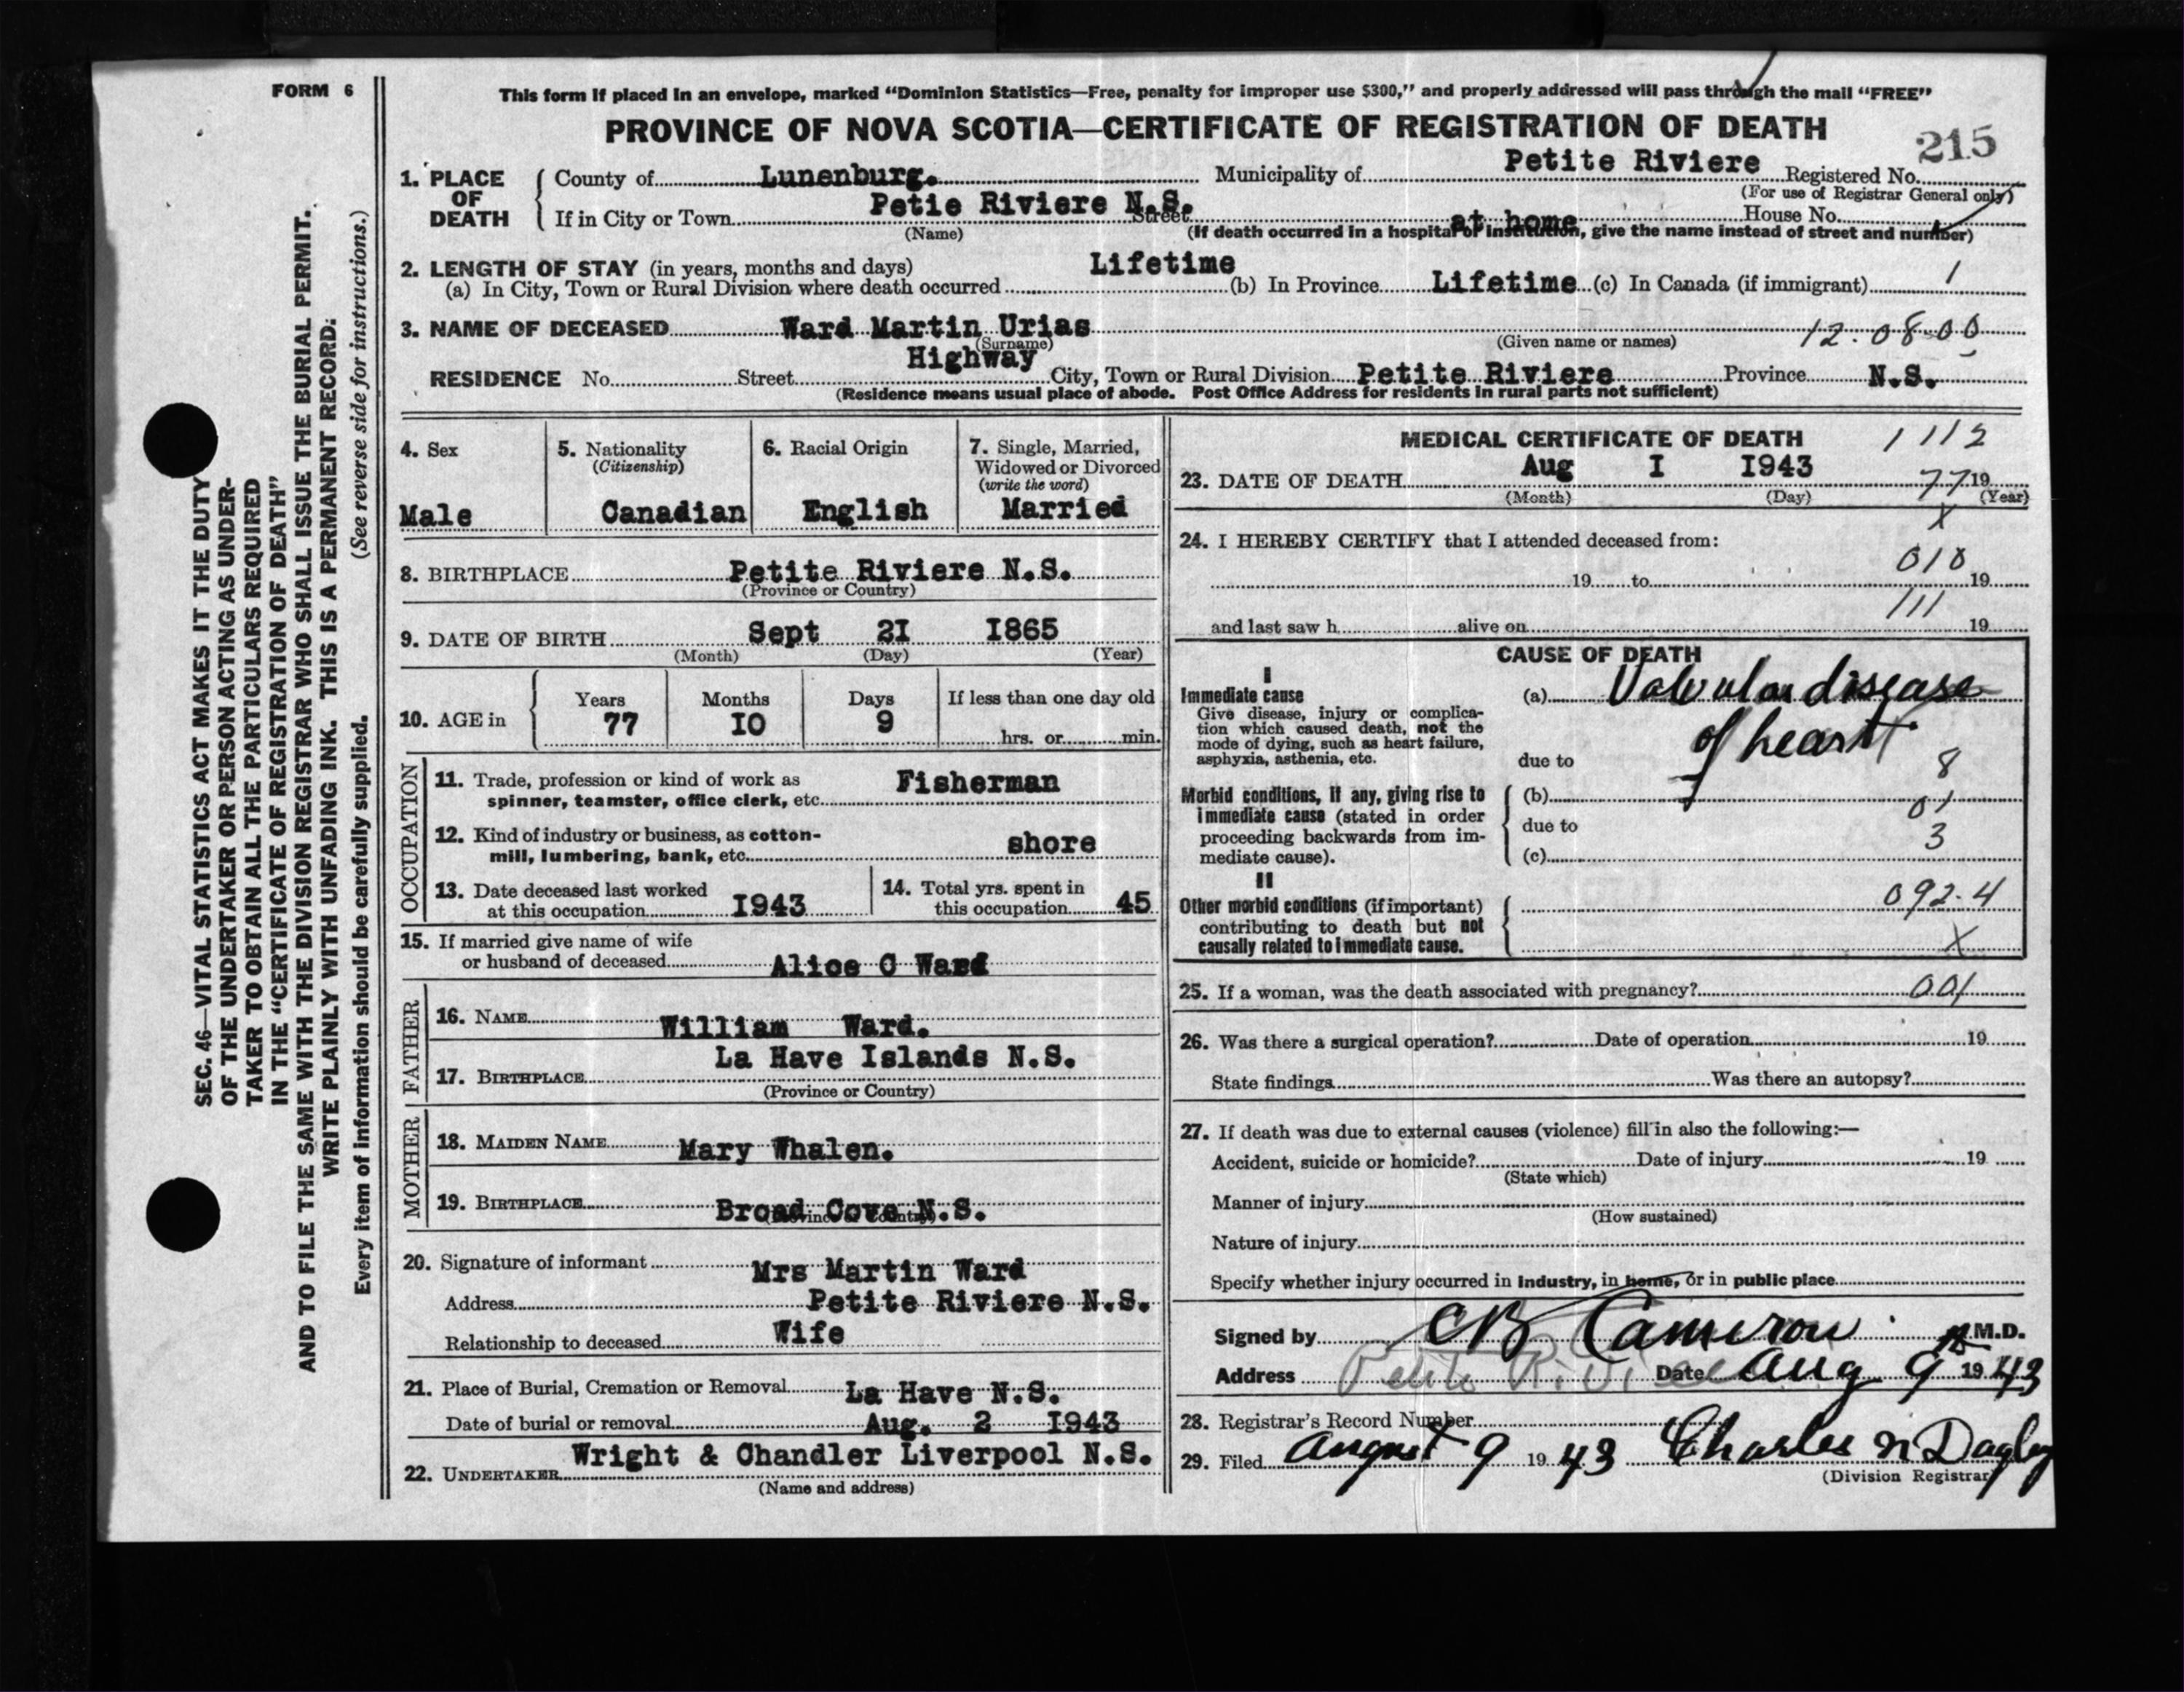 FORM 6
This form if placed in an envelope, marked “Dominion Statistics—Free, penalty for improper use $300,” and properly addressed will pass through the mail “FREE”
PROVINCE OF NOVA SCOTIA—CERTIFICATE OF REGISTRATION OF DEATH
215
1. PLACE OF DEATH
County of Lunenburg. Municipality of Petite Riviere Registered No.
(For use of Registrar General only)
If in City or Town Petie Riviere N.S. Street at home House No.
(Name) (If death occurred in a hospital or institution, give the name instead of street and number)
2. LENGTH OF STAY (in years, months and days)
(a) In City, Town or Rural Division where death occurred Lifetime (b) In Province Lifetime (c) In Canada (if immigrant) 1
3. NAME OF DECEASED Ward Martin Urias 12.08.00
(Surname) (Given name or names)
RESIDENCE No. Street Highway City, Town or Rural Division Petite Riviere Province N.S.
(Residence means usual place of abode. Post Office Address for residents in rural parts not sufficient)
4. Sex
Male
5. Nationality
(Citizenship)
Canadian
6. Racial Origin
English
7. Single, Married,
Widowed or Divorced
(write the word)
Married
8. BIRTHPLACE Petite Riviere N.S.
(Province or Country)
9. DATE OF BIRTH Sept 2I I865
(Month) (Day) (Year)
10. AGE in
Years Months Days If less than one day old
77 IO 9 hrs. or min.
OCCUPATION
11. Trade, profession or kind of work as Fisherman
spinner, teamster, office clerk, etc.
12. Kind of industry or business, as cotton-
mill, lumbering, bank, etc. shore
13. Date deceased last worked
at this occupation I943
14. Total yrs. spent in
this occupation 45
15. If married give name of wife
or husband of deceased Alice C Ward
FATHER
16. NAME William Ward.
17. BIRTHPLACE La Have Islands N.S.
(Province or Country)
MOTHER
18. MAIDEN NAME Mary Whalen.
19. BIRTHPLACE Broad Cove N.S.
(Province or Country)
20. Signature of informant Mrs Martin Ward
Address Petite Riviere N.S.
Relationship to deceased Wife
21. Place of Burial, Cremation or Removal La Have N.S.
Date of burial or removal Aug. 2 I943
22. UNDERTAKER Wright & Chandler Liverpool N.S.
(Name and address)
MEDICAL CERTIFICATE OF DEATH 1112
23. DATE OF DEATH Aug I I943 77 19
(Month) (Day) (Year)
X
24. I HEREBY CERTIFY that I attended deceased from:
010
19 to 19
111
and last saw h alive on 19
CAUSE OF DEATH
I
Immediate cause
Give disease, injury or complica-
tion which caused death, not the
mode of dying, such as heart failure,
asphyxia, asthenia, etc.
(a) Valvular disease
of heart
due to
8
Morbid conditions, if any, giving rise to
immediate cause (stated in order
proceeding backwards from im-
mediate cause).
(b)
01
due to
3
(c)
II
Other morbid conditions (if important)
contributing to death but not
causally related to immediate cause.
092.4
X
25. If a woman, was the death associated with pregnancy? 001
26. Was there a surgical operation? Date of operation 19
State findings Was there an autopsy?
27. If death was due to external causes (violence) fill in also the following:—
Accident, suicide or homicide? Date of injury 19
(State which)
Manner of injury
(How sustained)
Nature of injury
Specify whether injury occurred in industry, in home, or in public place
Signed by CB Cameron M.D.
Address Petite Riviere Date Aug 9 1943
28. Registrar's Record Number
29. Filed August 9 1943 Charles N Dagley
(Division Registrar)
SEC. 46—VITAL STATISTICS ACT MAKES IT THE DUTY
OF THE UNDERTAKER OR PERSON ACTING AS UNDER-
TAKER TO OBTAIN ALL THE PARTICULARS REQUIRED
IN THE “CERTIFICATE OF REGISTRATION OF DEATH”
AND TO FILE THE SAME WITH THE DIVISION REGISTRAR WHO SHALL ISSUE THE BURIAL PERMIT.
WRITE PLAINLY WITH UNFADING INK. THIS IS A PERMANENT RECORD.
Every item of information should be carefully supplied. (See reverse side for instructions.)